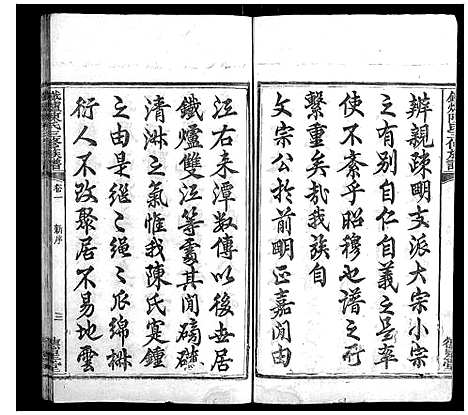 辨親疎明支派大宗小宗
之有别自仁自義之是率
使不紊乎昭穆也譜之所
繫重矣哉我族自
文宗公於前明正嘉間由
江右来潭数傳以後世居
鐵爐雙江等處其間磅礴
清淋之氣惟我陳氏寔鍾
之由是繼之繩之瓜綿椒
衍人不改聚居不易地雲
鐵爐陳氏三修族譜
卷一
新序
三